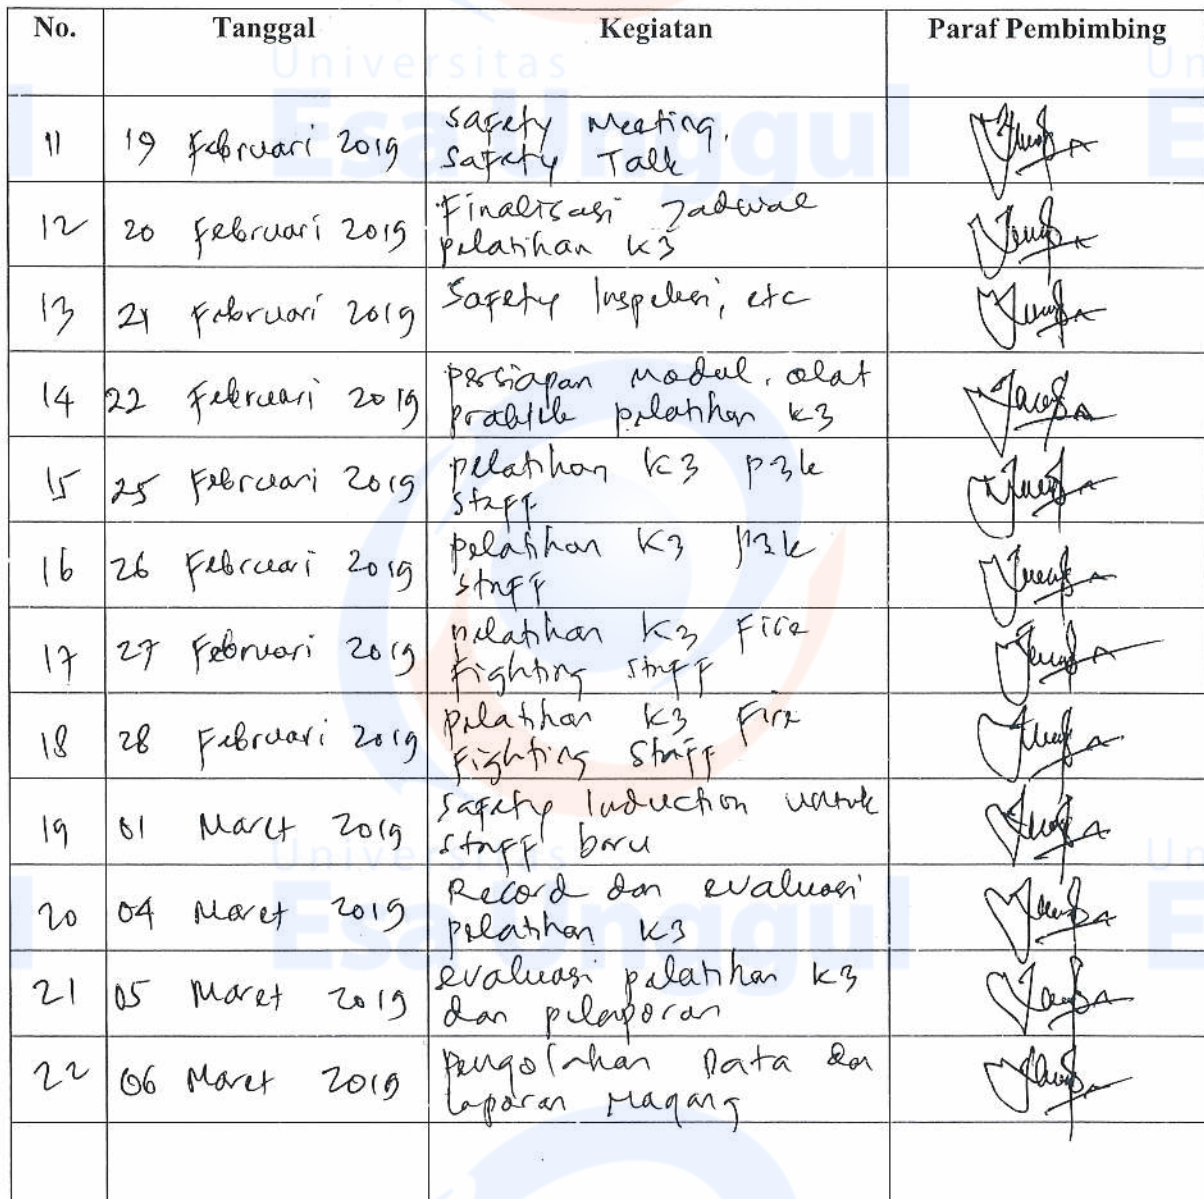 No. Tanggal Kegiatan Paraf Pembimbing
Universitas
Esa Unggul
11 19 Februari 2019 Safety Meeting,
Safety Talk
12 20 Februari 2019 Finalisasi Jadwal
pelatihan K3
13 21 Februari 2019 Safety Inspeksi, etc
14 22 Februari 2019 persiapan Modul, alat
praktik pelatihan K3
15 25 Februari 2019 pelatihan K3 P3k
staff
16 26 Februari 2019 pelatihan K3 P3k
staff
17 27 Februari 2019 pelatihan K3 Fire
Fighting staff
18 28 Februari 2019 pelatihan K3 Fire
Fighting Staff
19 01 Maret 2019 Safety Induction untuk
staff baru
Universitas
Esa Unggul
20 04 Maret 2019 Record dan evaluasi
pelatihan K3
21 05 Maret 2019 evaluasi pelatihan K3
dan pelaporan
22 06 Maret 2019 pengolahan Data dan
laporan Magang